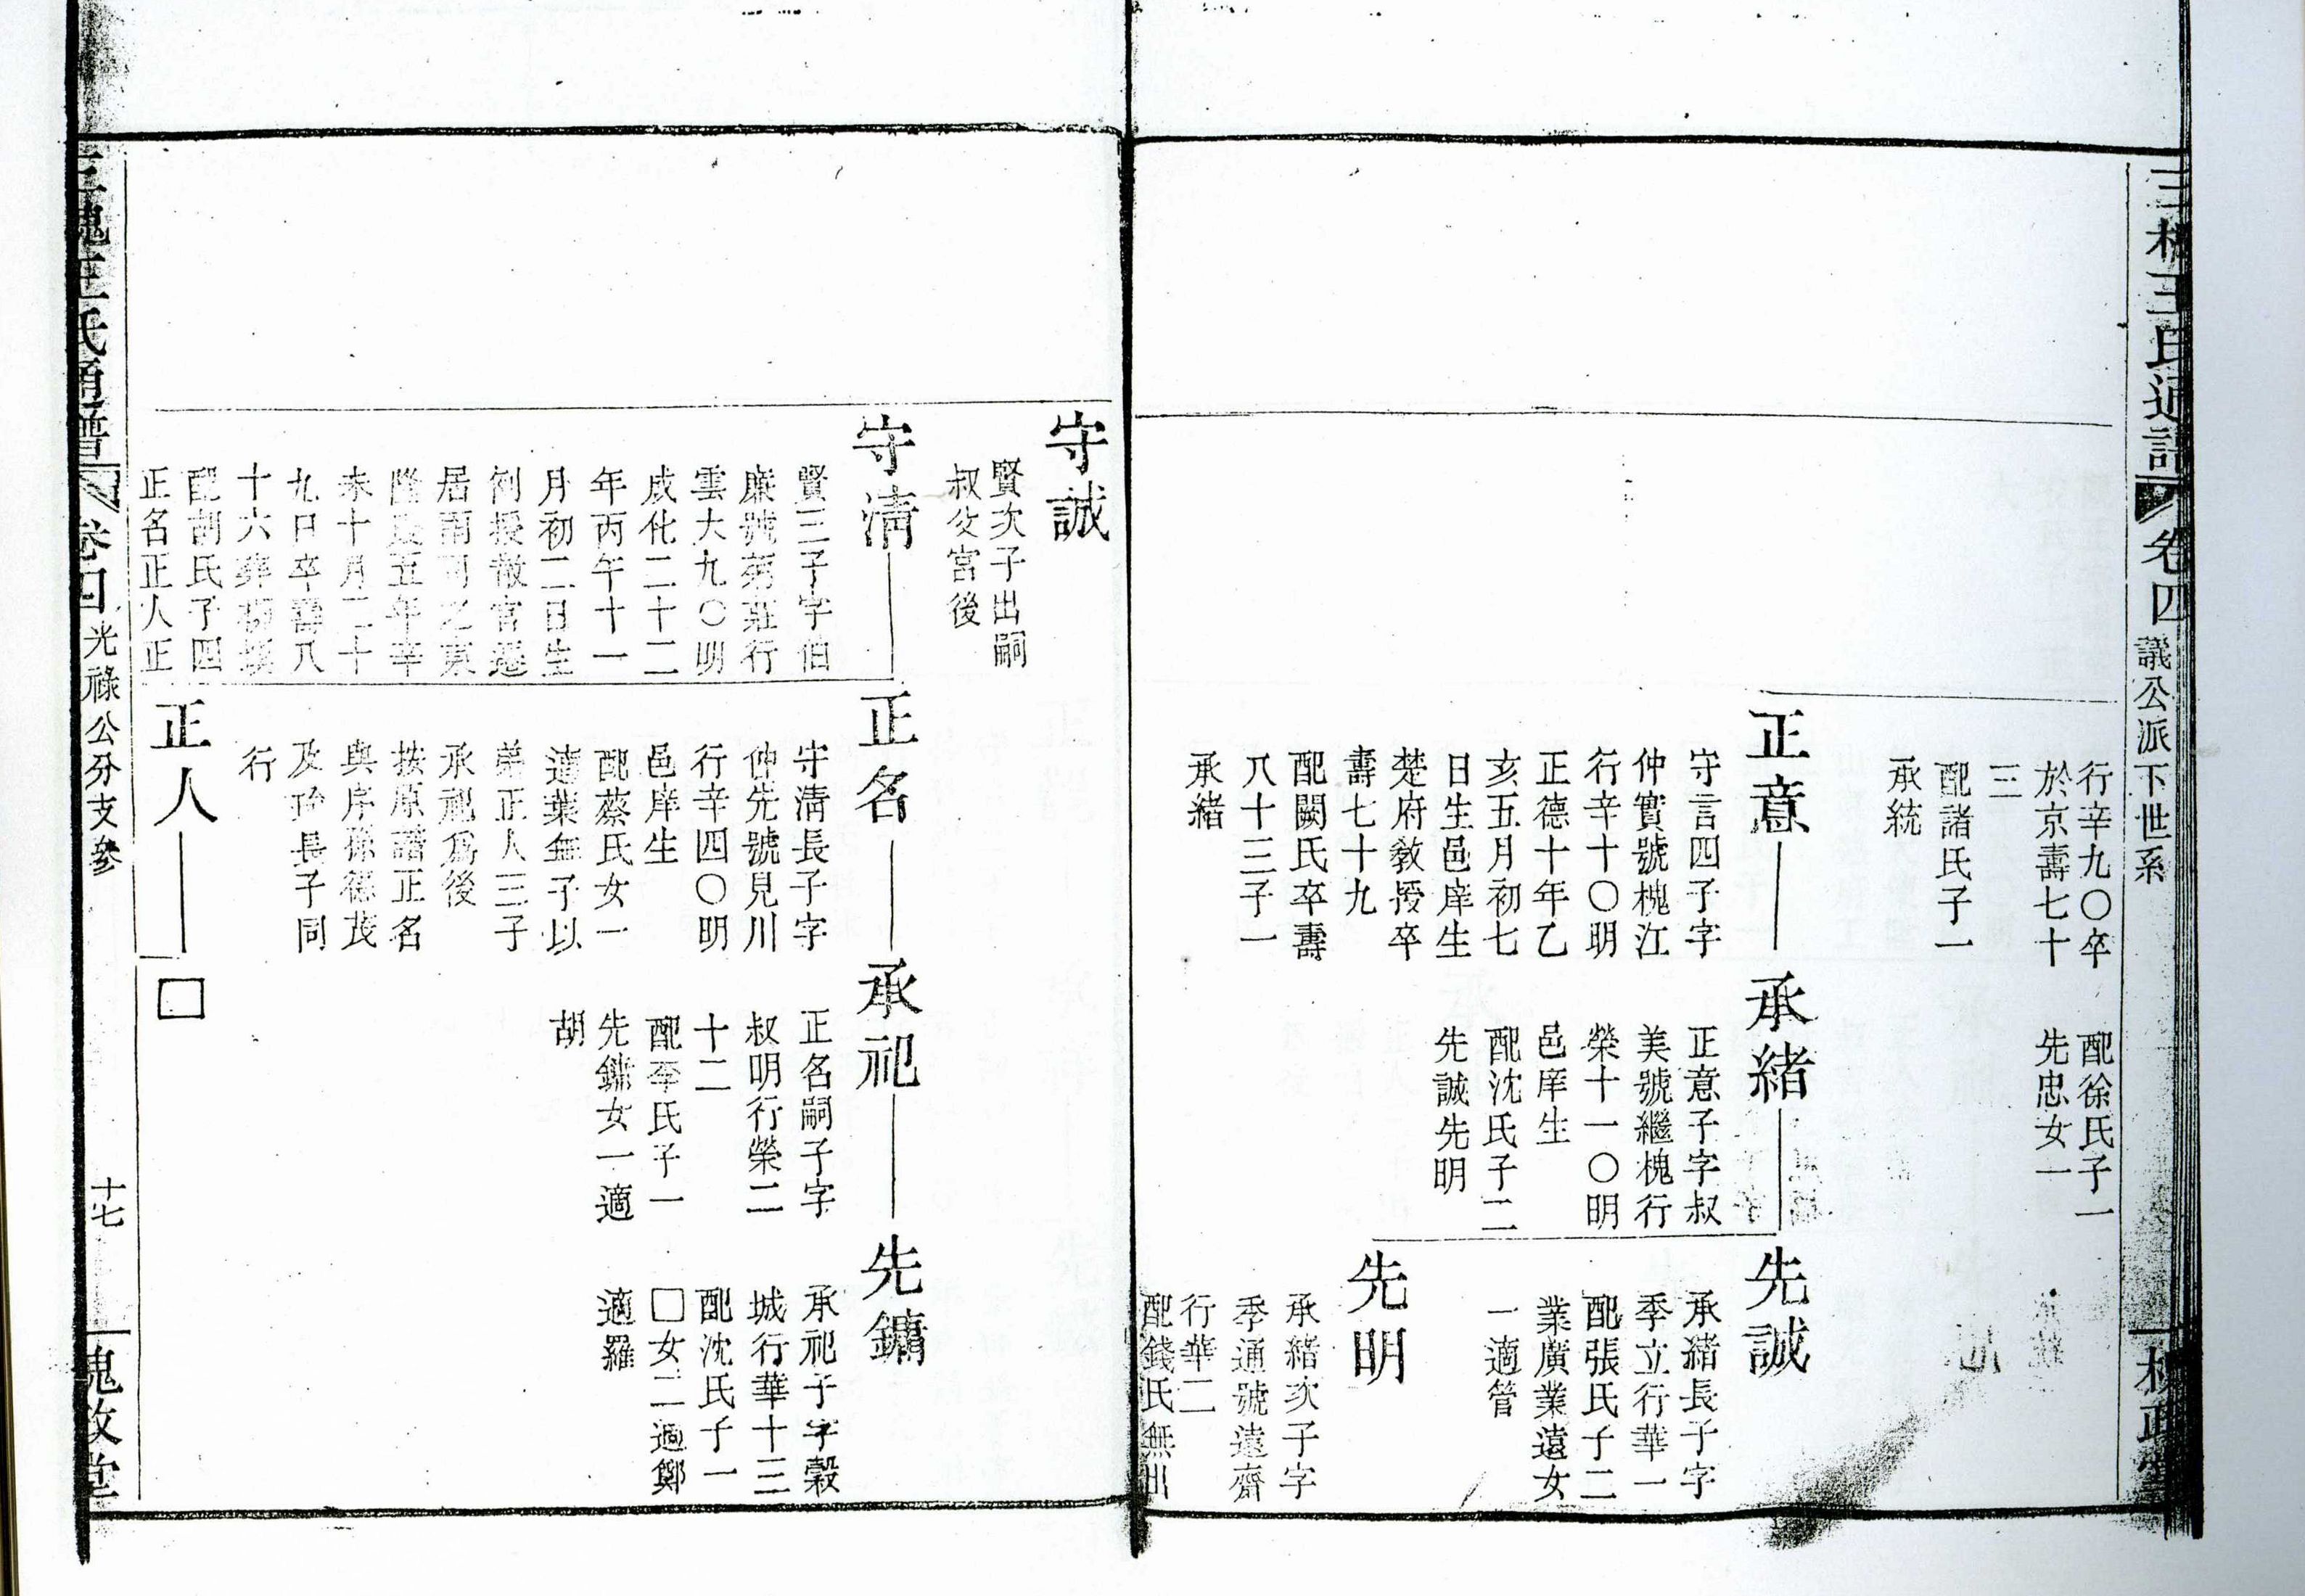 三槐王氏通譜 卷四 議公派下世系
槐政堂
行辛九〇卒
於京壽七十
三
配諸氏子一
承統
配徐氏子一
先忠女一
正意
守言四子字
仲實號槐江
行辛十〇明
正德十年乙
亥五月初七
日生邑庠生
楚府教授卒
壽七十九
配闕氏卒壽
八十三子一
承緒
承緒
正意子字叔
美號繼槐行
榮十一〇明
邑庠生
配沈氏子二
先誠先明
先誠
承緒長子字
季立行華一
配張氏子二
業廣業遠女
一適管
先明
承緒次子字
季通號遠齋
行華二
配錢氏無出
守誠
賢次子出嗣
叔父宮後
守清
賢三子字伯
廉號菊莊行
雲大九〇明
成化二十二
年丙午十一
月初二日生
例授散官遷
居雨司之東
隆慶五年辛
未十月二十
九日卒壽八
十六葬楊墳
配胡氏子四
正名正人正
正名
守清長子字
仲先號見川
行辛四〇明
邑庠生
配蔡氏女一
適葉無子以
弟正人三子
承祀為後
按原譜正名
與序孫德茂
及珍長子同
行
承祀
正名嗣子字
叔明行榮二
十二
配李氏子一
先鏞女一適
胡
先鏞
承祀子字榖
城行華十三
配沈氏子一
□女二適鄭
適羅
正人
□
三槐王氏通譜 卷四 光祿公分支參
十七
槐政堂